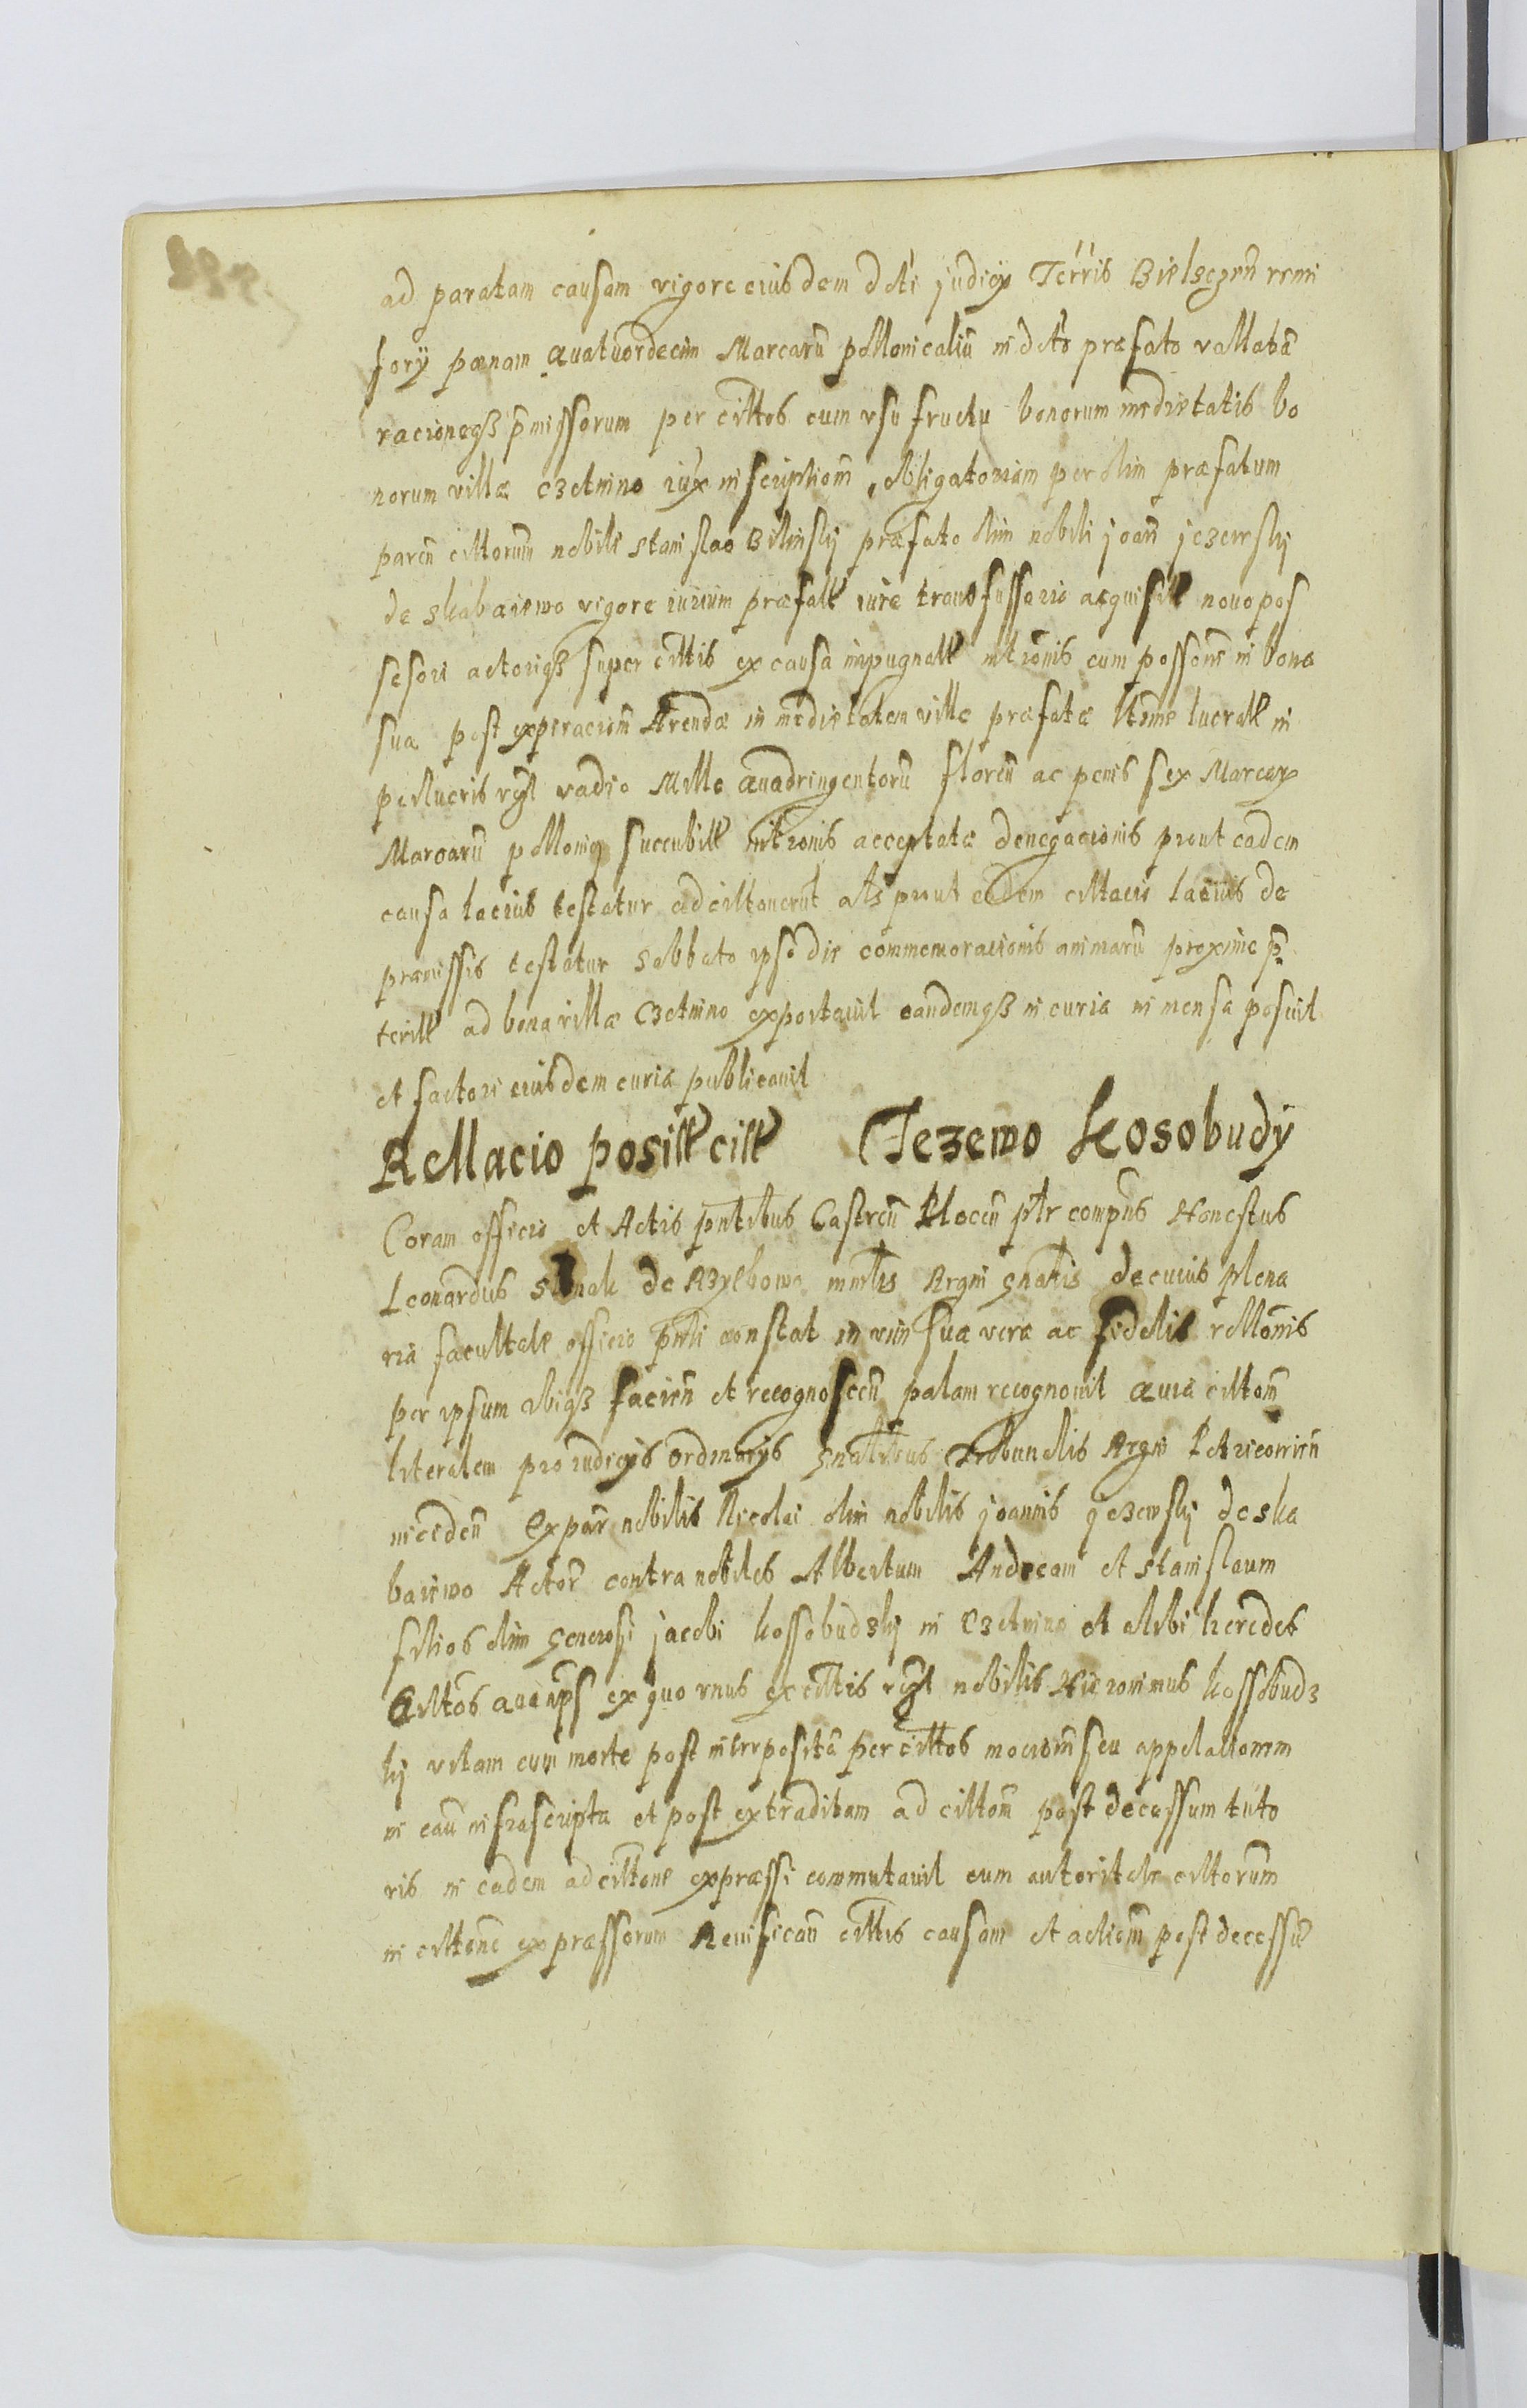 ad paratam causam vigore eiusdem dcti judicy Terris Bielscen rmi
fory pænam quatuordecim Marcaru pollonicaliu in dcto præfato vallata
racionegȝ pmissorum per citttos cum vsu fructu bonorum medietatis bo
norum villæ Czetnino iux inscriptiom obligatoriam per olim præfatum
paren cittorum nobili Stanislao Bilinsky præfato olim nobili joan jezewsky
de skabaiewo vigore iurium præfatt iure transfussorio acquisitt nouo pos
sesori actorigȝ super cittis ex causa impugnatt intronis cum possone in bona
sua post experaciom Arendæ in medietatem villæ præfatæ lucratt in
perlucris vadio Mille quadringentoru floren ac penis sex Marcar
Marcaru pollonicar succubitt intronis acceptatæ denegacionis prout eadem
causa lacius testatur adcittauerut als prout eadem cittacio lacius de
præmissis testatur Sabbato ipso die commemoracionis animaru proxime p
teritt ad bona villæ Czetnino exportauit eandemgȝ in curia in mensa posuit
et factori eiusdem curiæ publicauit
Rellacio positt citt Jezewo Kosobudy
Coram officio et Actis pntibus Castren Plocen pltr compns Honestus
Leonardus de Rzylbowo mnrlis Regni gnalis de cuius plena
ria facultate officio pnti constat in vim suæ veræ ac fidelis rellonis
per ipsum obigȝ facien et recognoscen palam recognouit quia cittom
literalem pro iudicys ordinarys gnalibus Tribunalis Regni Petricouien
inciden ex par nobilis Nicolai olim nobilis joannis jezewsky de ska
baiewo Actor contra nobiles Albertum Andream et Stanislaum
filios olim generosi jacobi kossobudsky in Czetnino et alibi heredes
Cittos ex quo vnus ex cittis nobilis Hieronimus kossobudz
ky vitam cum morte post interposita per cittos mociom seu appelationem
in cau infrascripta et post extraditam adcittom post decessum tuto
ris in eadem adcittone expressi commutauit cum autoritate cittorum
in cittone expressorum Reuifican cittis causam et actiom post decessu